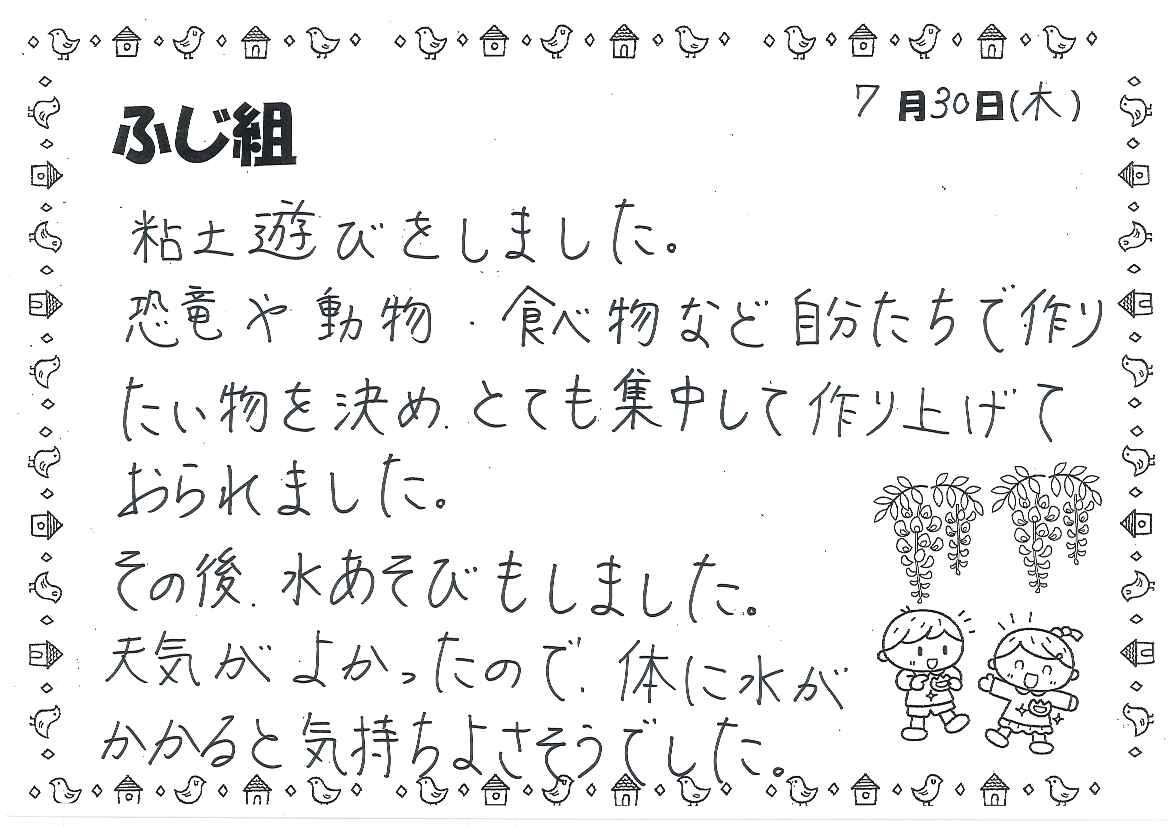 7月30日(木)
ふじ組
粘土遊びをしました。
恐竜や動物・食べ物など自分たちで作り
たい物を決め、とても集中して作り上げて
おられました。
その後、水あそびもしました。
天気がよかったので、体に水が
かかると気持ちよさそうでした。